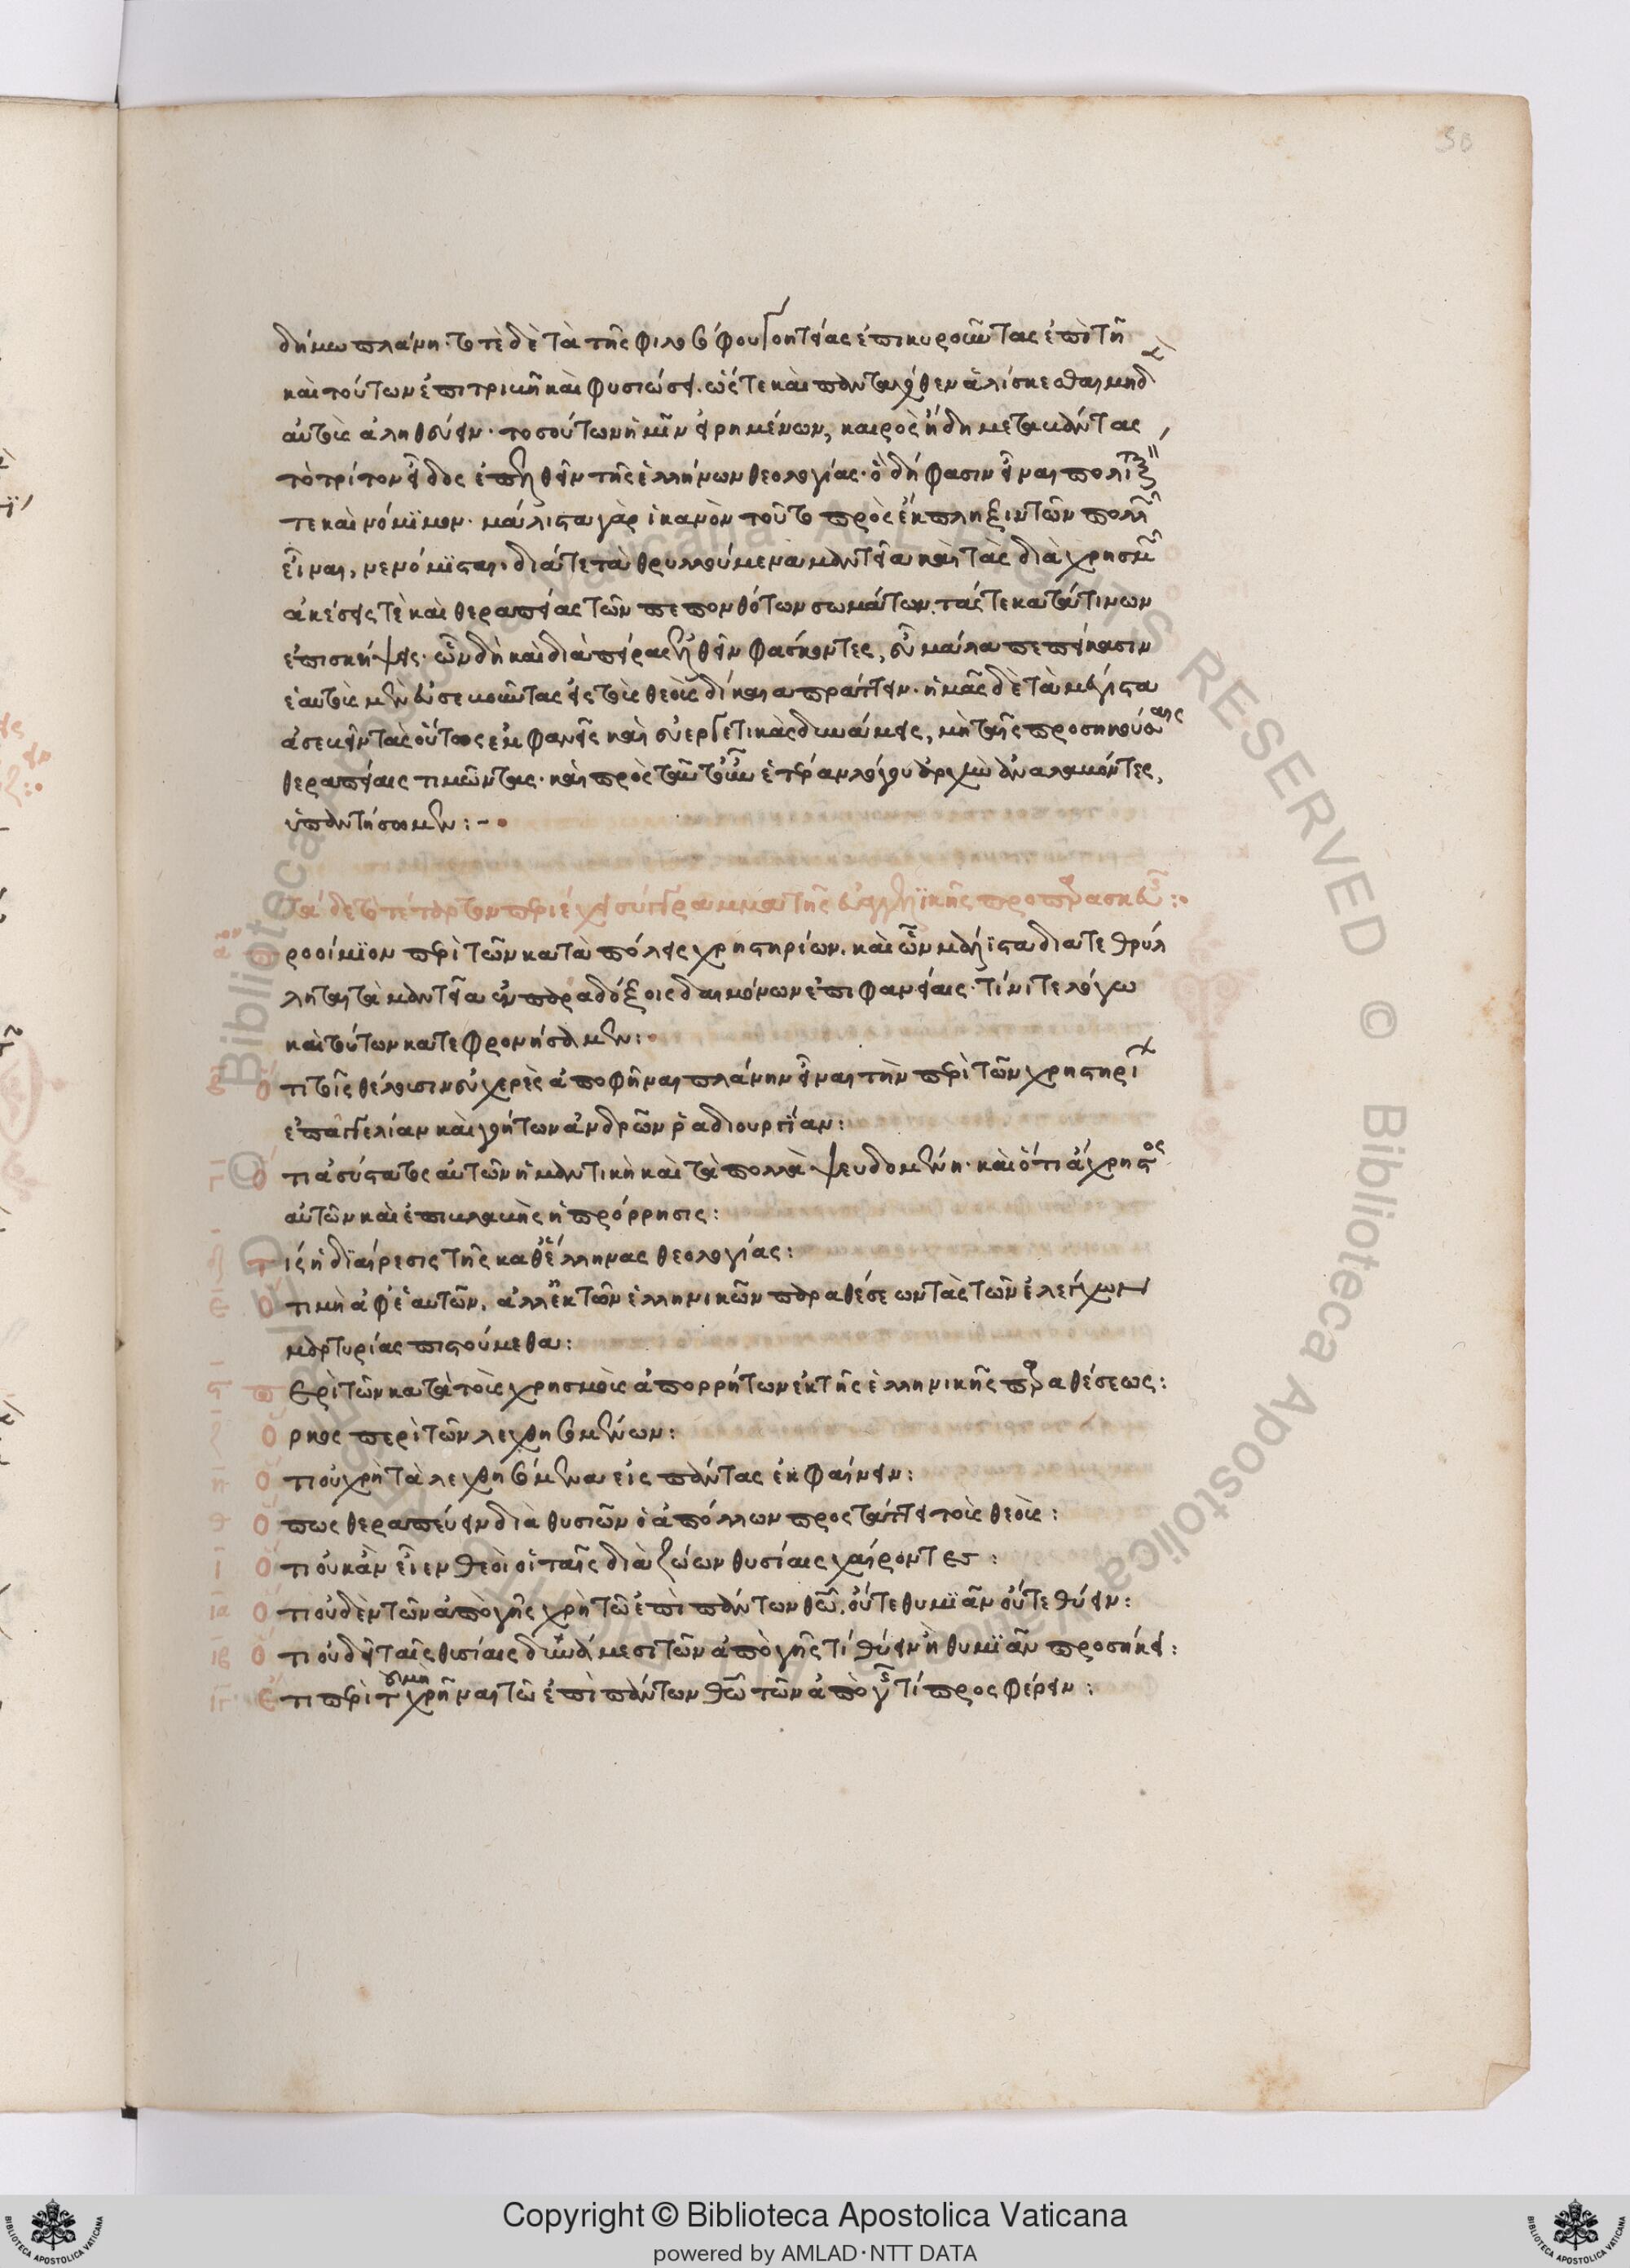 50
δήμω πλάνη· τοτὲ δὲ τὰ τῆς φιλοσόφου γοητείας ἐπικυροῦντας ἐπὶ τῆ
καὶ τούτων ἐπιτριπτῆ καὶ φυσιώσει. ὥστε καὶ πανταχόθεν ἁλίσκεσθαι μηδὲν
αὐτοῖς ἀληθεύειν· τοσούτων ἡμῖν εἰρημένων, καιρὸς ἤδη μεταβάντας
τὸ τρίτον εἶδος ἐπελθεῖν τῆς ἑλλήνων θεολογίας· ὃ δή φασιν εἶναι πολιτικόν
τε καὶ νόμιμον· μάλιστα γὰρ ἱκανὸν τοῦτο πρὸς ἔκπληξιν τῶν πολλῶν
εἶναι, νενόμισται· διά τε τὰ θρυλλούμενα μαντεῖα καὶ τὰς διὰ χρησμῶν
ἀκέσεις τὲ καὶ θεραπείας τῶν πεπονθότων σωμάτων. τάς τε κατά τινων
ἐπισκήψεις· ὧν δὴ καὶ διὰ πείρας ἐλθεῖν φάσκοντες, εὖ μάλα πεπείκασιν
ἑαυτοὺς μὲν εὐσεβοῦντας εἰς τοὺς θεοὺς δίκαια πράττειν· ἡμᾶς δὲ τὰ μέγιστα
ἀσεβεῖν τὰς οὕτως ἐμφανεῖς καὶ εὐεργετικὰς δυνάμεις, μὴ ταῖς προσηκούσαις
θεραπείαις τιμῶντας· καὶ πρὸς ταῦτ' οὖν ἑτέραν λόγου ἀρχὴν ἀναλαβόντες,
ὑπαντήσωμεν :-
Τάδε τὸ τέταρτον περιέχει σύγγραμμα τῆς εὐαγγελϊκῆς προπαρασκευῆς :
α Προοίμϊον περὶ τῶν κατὰ πόλεις χρηστηρίων. καὶ ὧν μάλιστα διατεθρύλ
ληται τὰ μαντεῖα ἐν παραδόξοις δαιμόνων ἐπιφανείαις· τίνι τε λόγω
καὶ τούτων κατεφρονήσαμεν :
β Ὅτι τοῖς θέλουσιν εὐχερὲς ἀποφῆναι πλάνην εἶναι τὴν περὶ τῶν χρηστηρίων
ἐπαγγελίαν καὶ γοήτων ἀνδρῶν ῥαδιουργίαν :
γ Ὅτι ἀσύστατος αὐτῶν ἡ μαντικὴ καὶ τὰ πολλὰ ψευδομένη· καὶ ὅτι ἄχρηστος
αὐτῶν καὶ ἐπιβλαβὴς ἡ πρόρρησις :
δ Τίς ἡ διαίρεσις τῆς καθ' ἕλληνας θεολογίας :
ε Ὅτι μὴ ἀφ' ἑαυτῶν. ἀλλ' ἐκ τῶν ἑλληνικῶν παραθέσεων τὰς τῶν ἐλέγχων
μαρτυρίας πιστούμεθα :
ϛ Περὶ τῶν κατὰ τοὺς χρησμοὺς ἀπορρήτων ἐκ τῆς ἑλληνικῆς παραθέσεως :
ζ Ὅρκος περὶ τῶν λεχθησομένων :
η Ὅτι οὐ χρὴ τὰ λεχθησόμενα εἰς πάντας ἐκφαίνειν :
θ Ὅπως θεραπεύειν διὰ θυσιῶν ὁ ἀπόλλων προστάττει τοὺς θεούς :
ι Ὅτι οὐκ ἂν εἶεν θεοὶ οἱ ταῖς διὰ ζώων θυσίαις χαίροντες :
ια Ὅτι οὐδὲν τῶν ἀπὸ γῆς χρὴ τῶ ἐπὶ πάντων θεῶ. οὔτε θυμιᾶν οὔτε θύειν :
ιβ Ὅτι οὐδὲ ταῖς θείαις δυνάμεσι τῶν ἀπὸ γῆς τί θύειν ἢ θυμιᾶν προσήκει :
ιγ Ἔτι περὶ τοῦ μὴ χρῆναι τῶ ἐπὶ πάντων θεῶ τῶν ἀπὸ γῆς τί προσφέρειν :
Copyright © Biblioteca Apostolica Vaticana
powered by AMLAD・NTT DATA